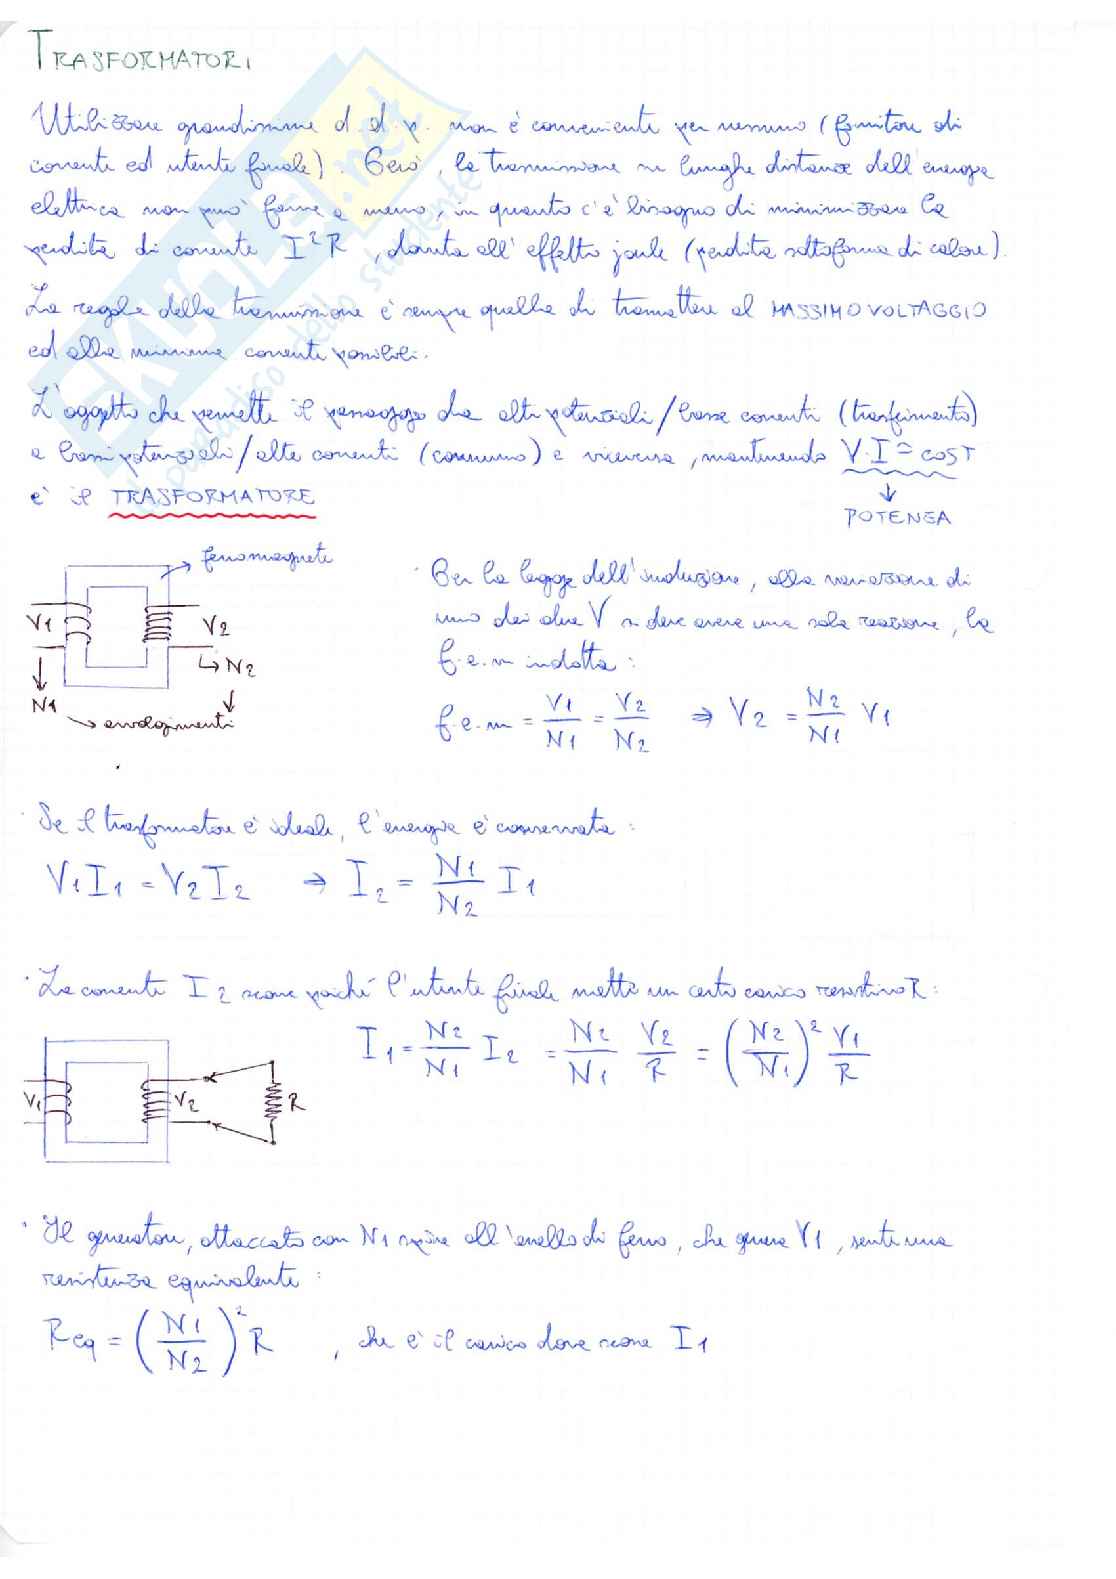 TRASFORMATORI
Utilizzare grandissime d.d.p. non è conveniente per nessuno (fornitore di
corrente ed utente finale). Però, la trasmissione su lunghe distanze dell'energia
elettrica non può farne a meno, in quanto c'è bisogno di minimizzare la
perdita di corrente I²R, dovuta all'effetto joule (perdita sottoforma di calore).
La regola della trasmissione è sempre quella di trasmettere al MASSIMO VOLTAGGIO
ed alla minima corrente possibili.
L'oggetto che permette il passaggio da alti potenziali/basse correnti (trasferimento)
a bassi potenziali/alte correnti (consumo) e viceversa, mantenendo V·I = COST
è il TRASFORMATORE
POTENZA
ferromagnete
V1
V2
N2
N1
avvolgimenti
· Per la legge dell'induzione, alla variazione di
uno dei due V si deve avere una sola reazione, la
f.e.m indotta:
f.e.m = V1/N1 = V2/N2 ⇒ V2 = N2/N1 V1
· Se il trasformatore è ideale, l'energia è conservata:
V1I1 = V2I2 ⇒ I2 = N1/N2 I1
· La corrente I2 scorre poiché l'utente finale mette un certo carico resistivo R:
I1 = N2/N1 I2 = N2/N1 V2/R = (N2/N1)² V1/R
V1
V2
R
· Il generatore, attaccato con N1 spire all'anello di ferro, che genera V1, sente una
resistenza equivalente:
Req = (N1/N2)² R , che è il carico dove scorre I1
SKUOLA.net
il paradiso dello studente